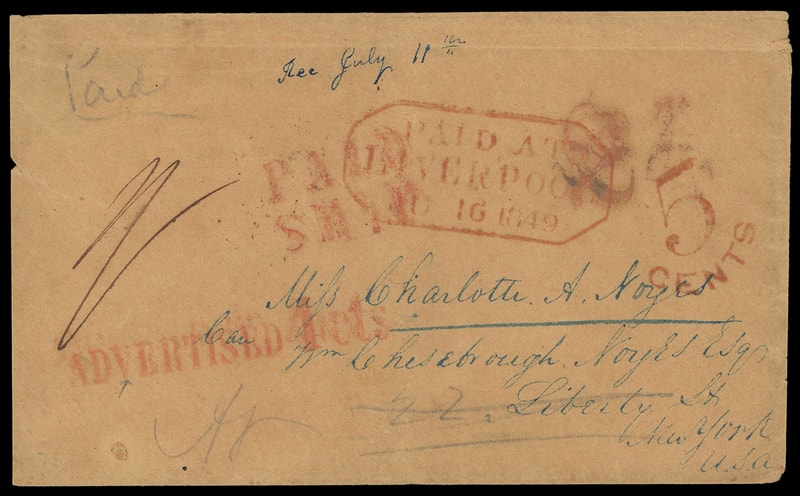 Paid
Rec July 11th
PAID AT
LIVERPOOL
16 1849
PAID
5
CENTS
Miss Charlotte. A. Noyes
ADVERTISED 1 cts
Care
Wm Chesebrough Noyes Esqr
22. Liberty St
New York
U.S.A